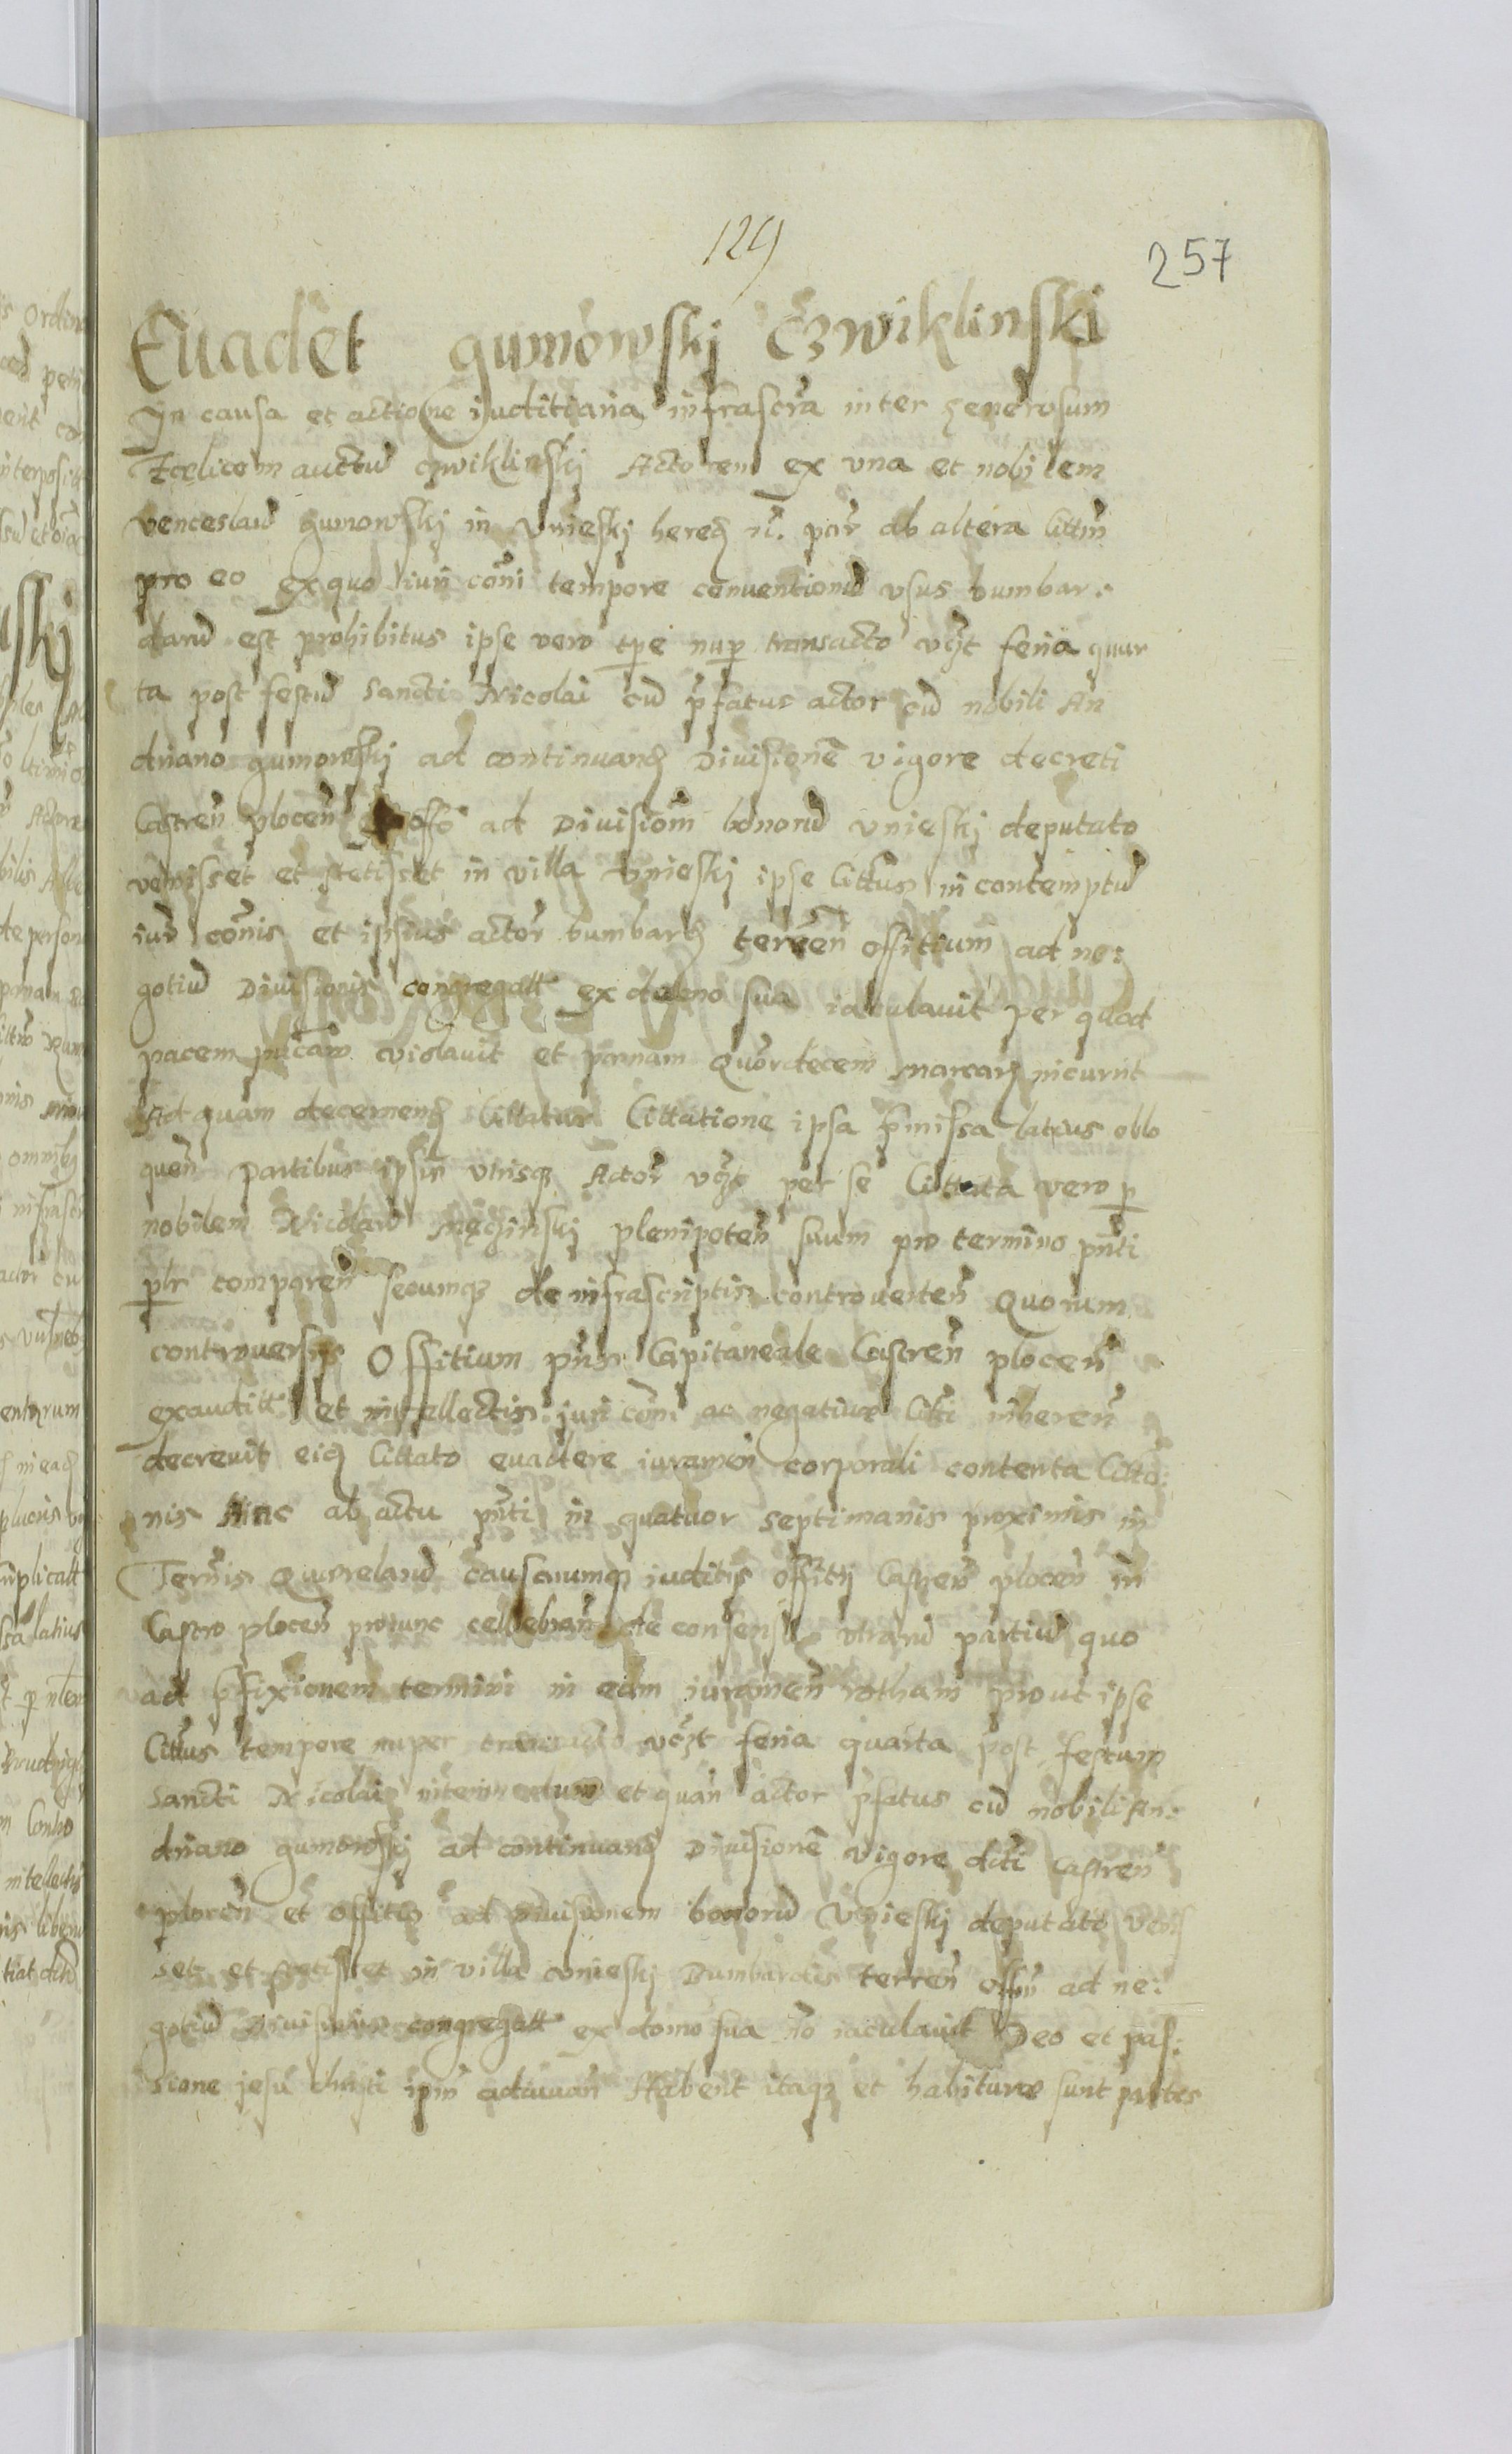 129
257
Euadet gumowskj Czwiklinski
In causa et actione iuditiaria infrascra inter generosum
Fcelicem auctum czwiklinskj Actorem ex vna et nobilem
venceslaum gumowskj in Vnieskj hered par ab altera littm
pro eo ex quo iuri coni tempore conuentionum vsus bumbar:
darum est prohibitus ipse vero tpe nup transacto vczt feria quar
ta post festum Sancti Nicolai cum pfatus actor cum nobili An
driano gumowskj ad continuand Diuisione vigore decreti
Castren plocen offo ad Diuisiom bonorum vnieskj deputato
venisset et stetisset in villa Vnieskj ipse littus in contemptum
iur conis et ipsius actor bumbard terren offitium ad ne:
gotium Diuisionis congregatt ex domo sua iaculauit per quod
pacem pucam violauit et pcenam Quordecem marcar incurrit
Ad quam decernend littatur littatione ipsa pmissa latius oblo
quen Partibus ipsis vtrisq Actor vczt per se littata vero p
nobilem Nicolaum plenipoten suum pro termino pnti
plr comparen secumq de infrascriptis controuerten Quorum
controuersys Offitium pns Capitaneale Castren plocen
exauditt et intellectis iuri coni ac negatiue litti inheren
decreuit eid littato euadere iuramen corporali contenta litto:
nis hinc ab actu pnti in quatuor septimanis proximis in
Termis Querelarum causarumq iuditys offity Castren plocen in
Castro plocen protunc cellebran de consensu vtrarum partium quo
ad pfixionem termini in eam iuramen rotham prout ipse
littus tempore nuper transacto vczt feria quarta post festum
Sancti Nicolai et quan actor pfatus cum nobili An:
driano gumowskj ad continuand Diuisione vigore dcti Castren
plocen et offitio ad Diuisionem bonorum Vnieskj deputato venis
set et stetisset in villa vnieskj Bumbardis terren offm ad ne:
gotium Diuisionis congregatt ex domo sua no iaculauit Deo et pas:
sione jesu christi ipm adiuuan Habent itaq et habiture sunt partes